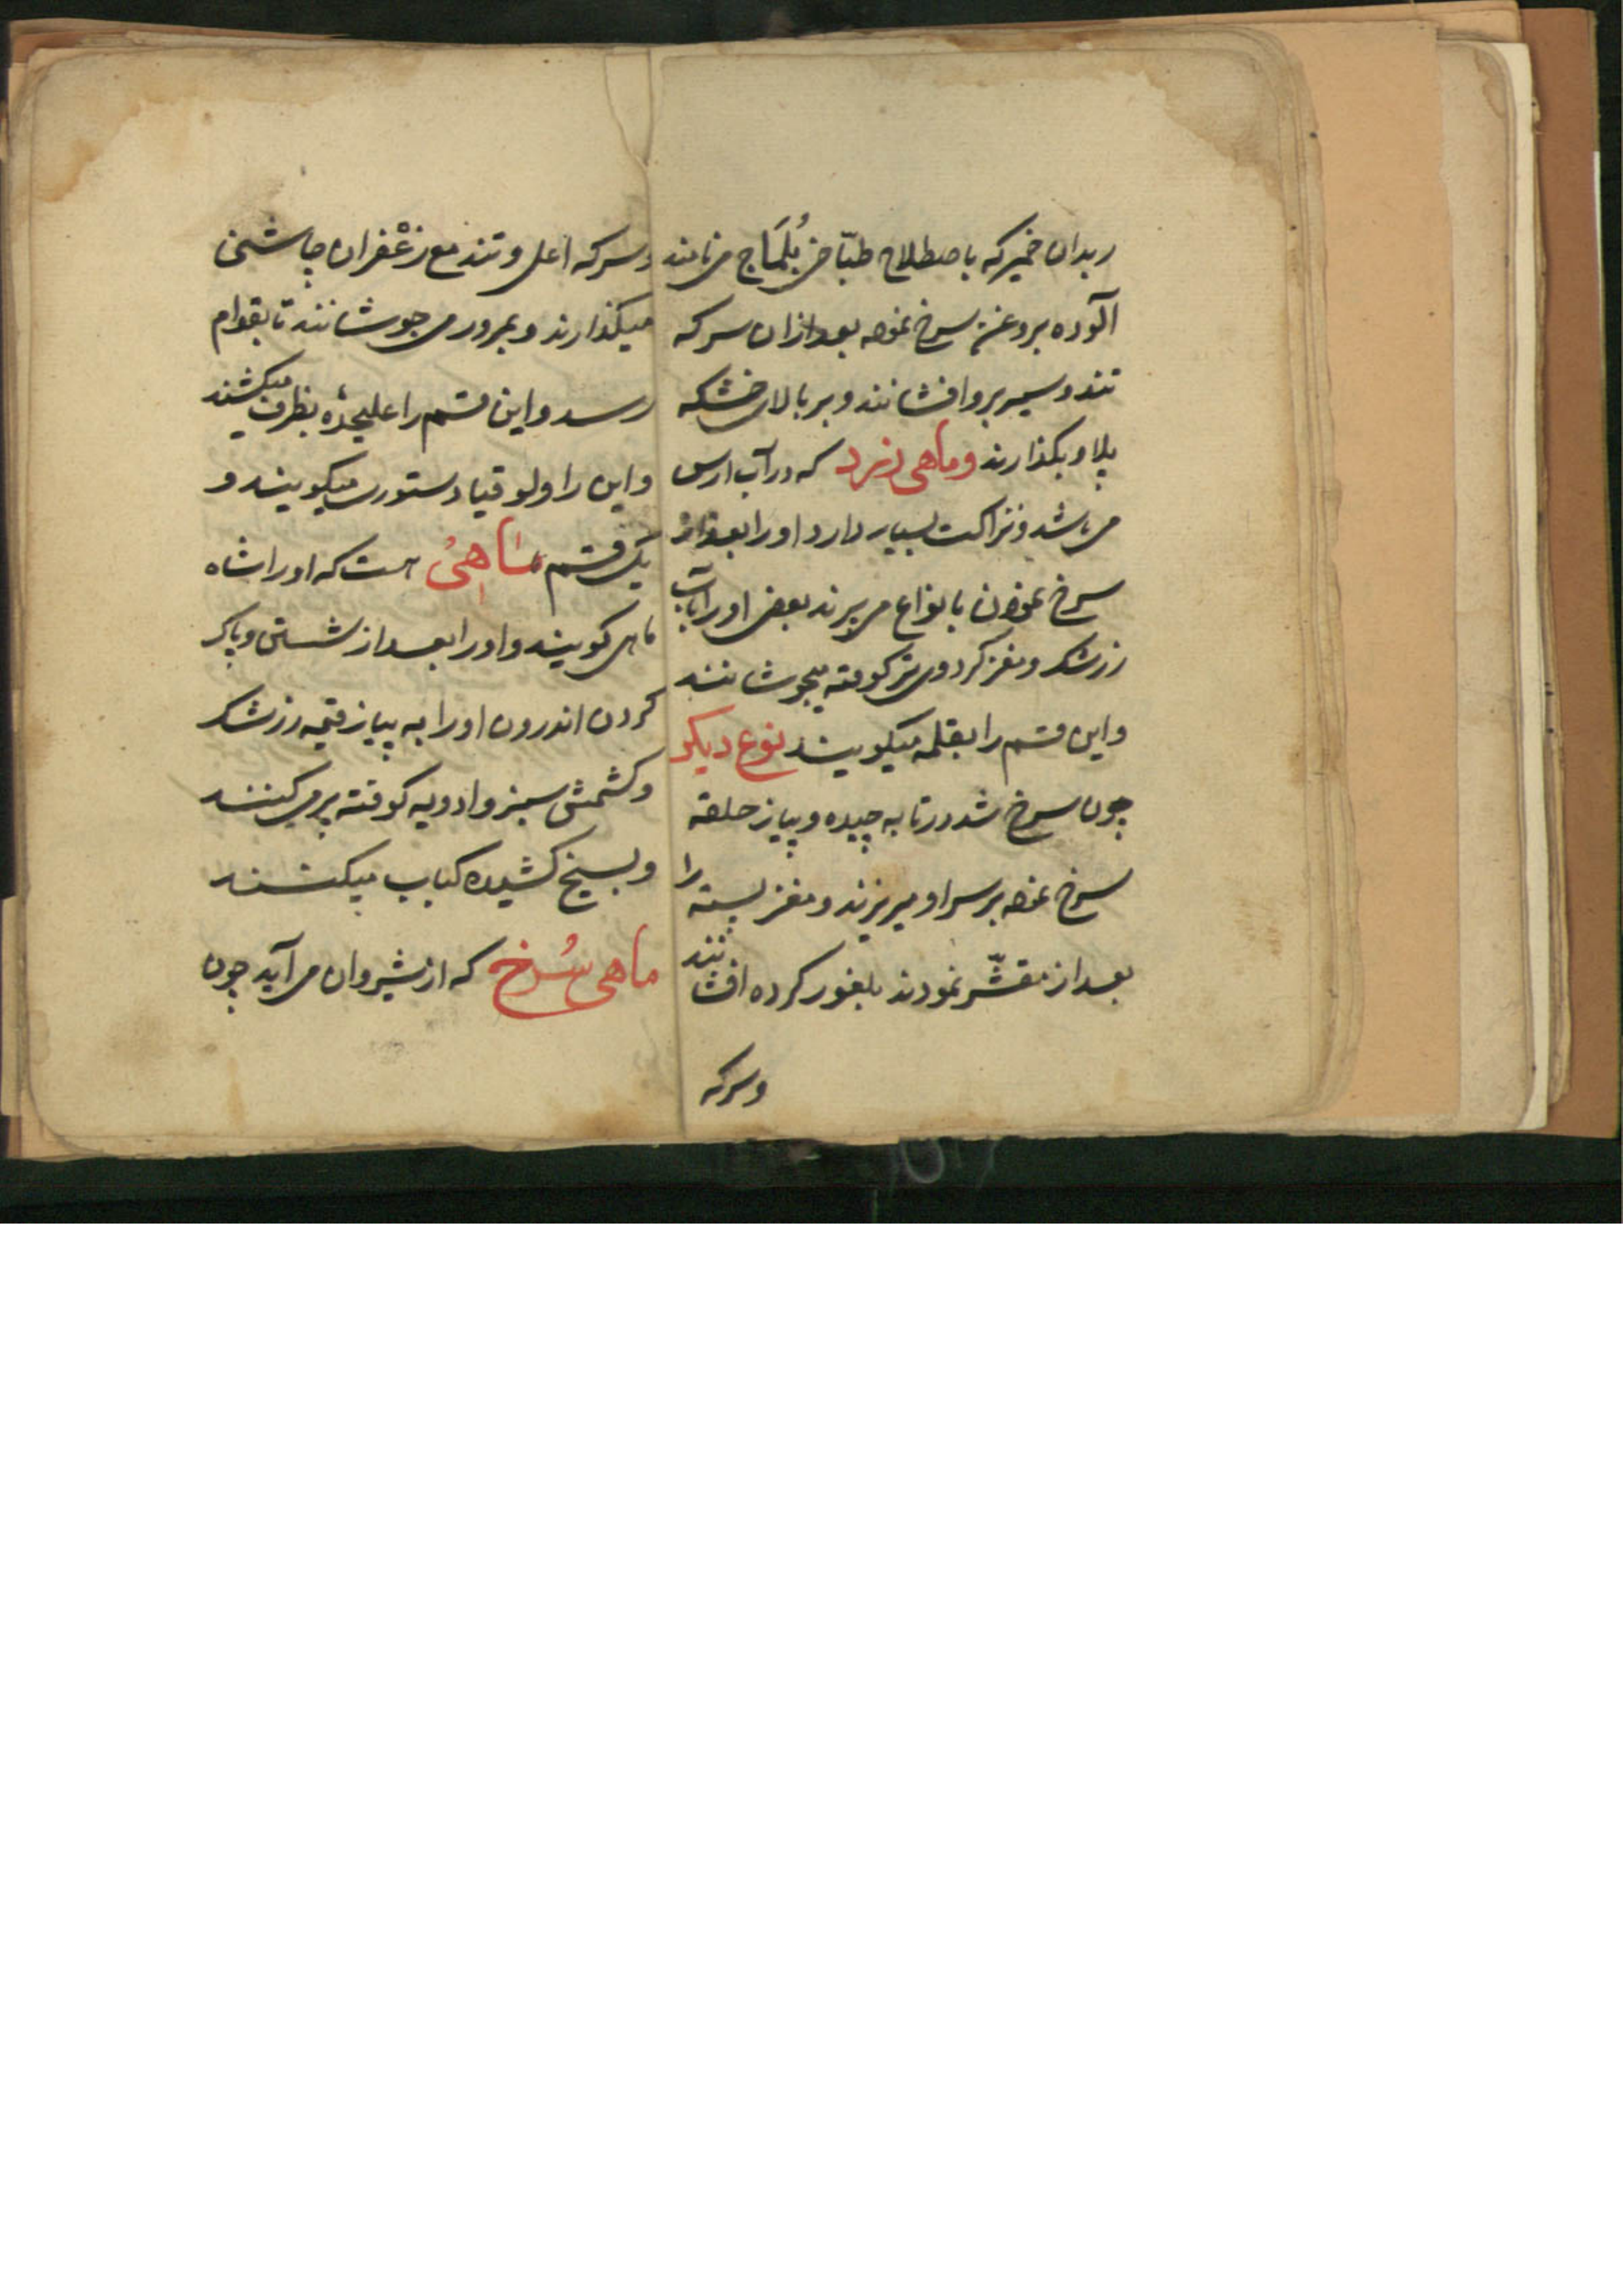 و بدان خمیر که باصطلاح طبّاخی بُلَماج می نامند
آلوده بروغن سرخ نموده بعد ازان سرکه
تند و سیر برو افشانند و بر بالای خشکه
پلاو بکذارند و ماهی زرد که در آب ارس
می باشد و نزاکت بسیار دارد او را بعد از
سرخ نمودن بانواع می پزند بعضی او را بآب
زرشک و مغز کردوی تر کوفته میجوشانند
و این قسم را بقلمه میکویند نوع دیکر
چون سرخ شد در تابه چیده و پیاز حلقه
سرخ نموده بر سر او میریزند و مغز پسته را
بعد از مقشّر نمودند بلغور کرده افشانند
وسرکه
وسرکه اعلی و تند مع زعْفران چاشنی
میکذارند و بمرور می جوشانند تا بقوام
رسد و این قسم را علیحده بظرف میکشند
و این را ولو قیا دستوری میکویند و
یک قسم ماهئ هست که او را شاه
ماهی کویند و او را بعد از شستن و پاک
کردن اندرون او را به پیاز قیمه و زرشک
و کشمش سبز و ادویه کوفته پر می کنند
و بسیخ کشیده کباب میکنند
ماهی سُرخ که از شیروان می آید چون